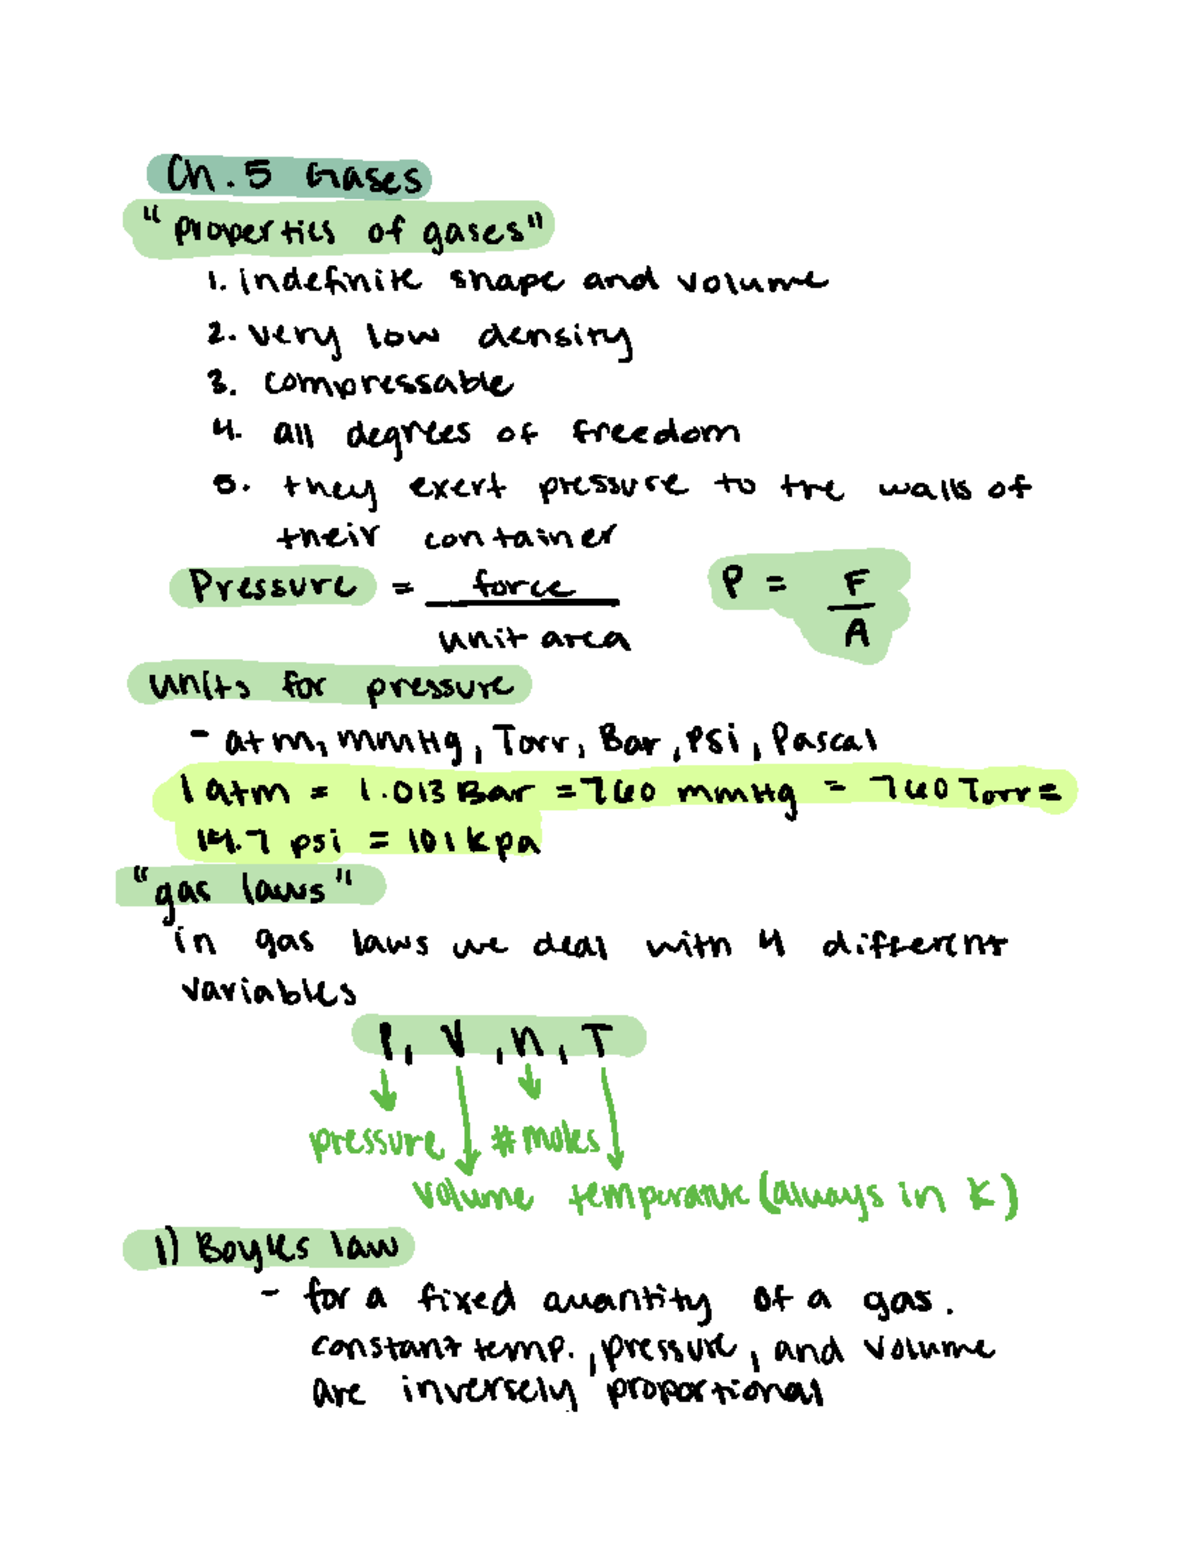 Ch. 5 Gases
"properties of gases"
1. indefinite shape and volume
2. very low density
3. compressable
4. all degrees of freedom
5. they exert pressure to the walls of
their container
Pressure = force / unit area P = F / A
units for pressure
- atm, mmHg, Torr, Bar, psi, Pascal
1 atm = 1.013 Bar = 760 mmHg = 760 Torr =
14.7 psi = 101 kpa
"gas laws"
in gas laws we deal with 4 different
variables
P, V, n, T
pressure #moles
volume temperature (always in K)
1) Boyles law
- for a fixed quantity of a gas.
constant temp., pressure, and volume
are inversely proportional